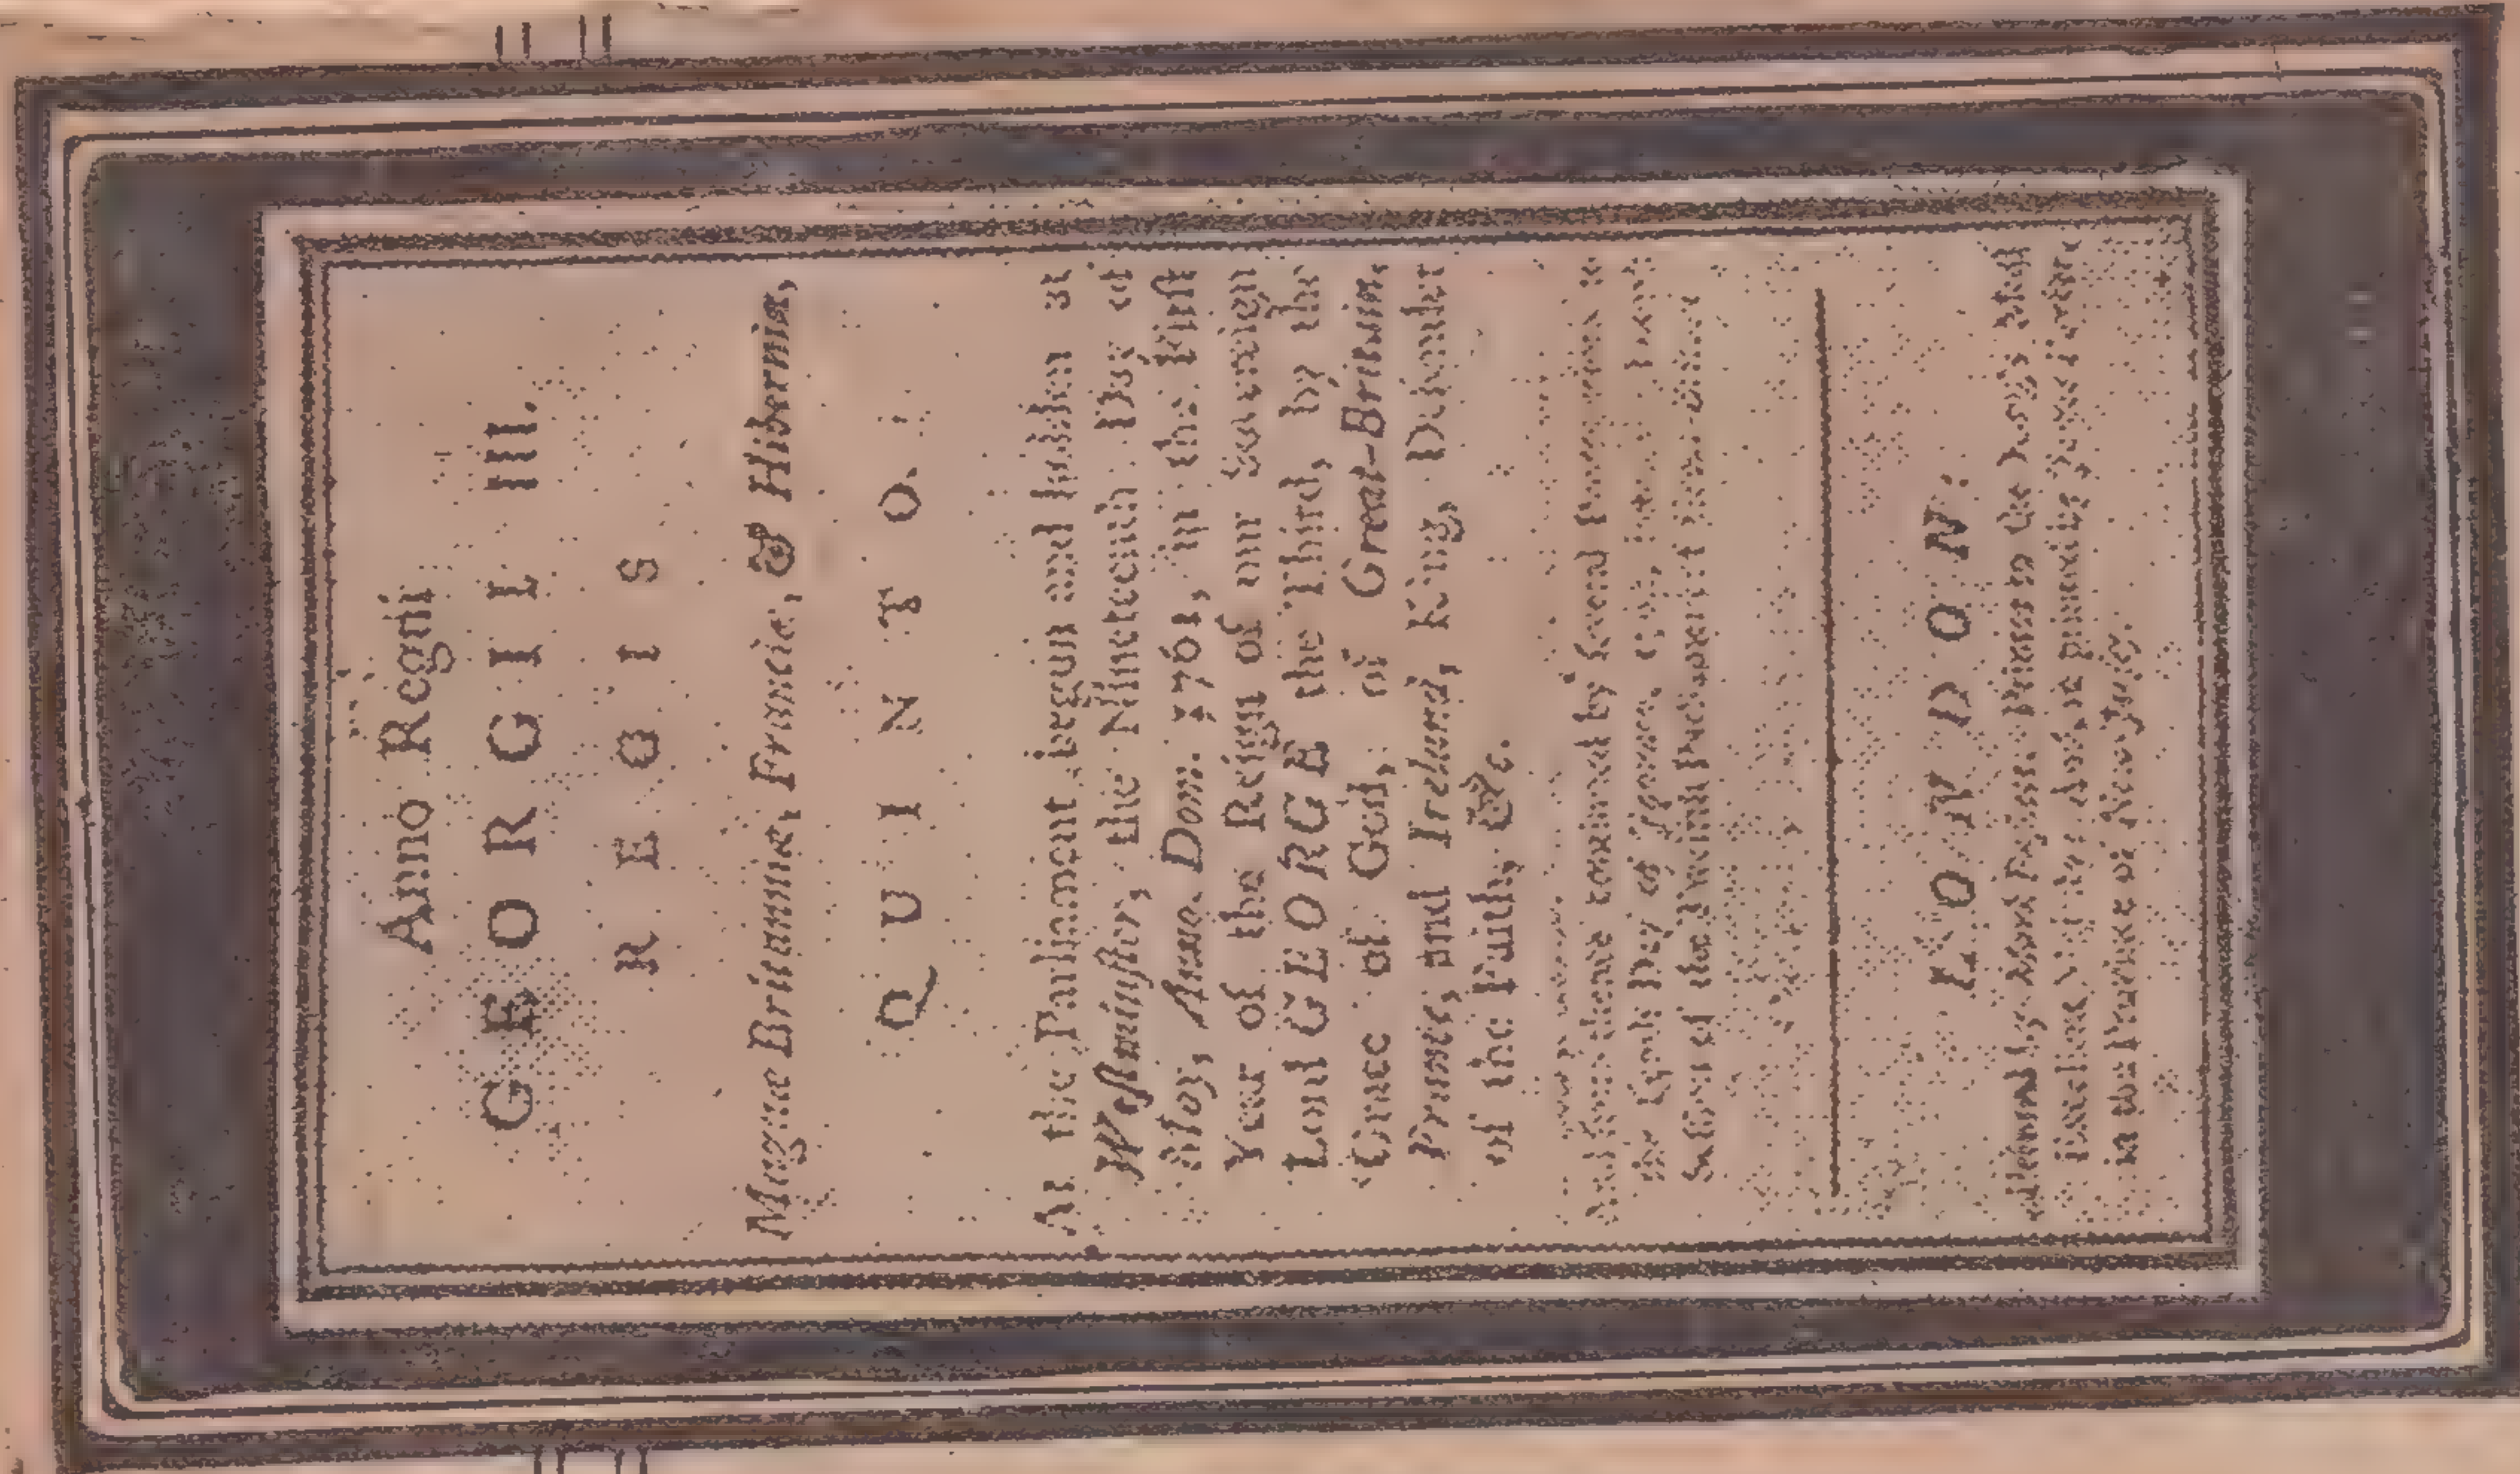 Anno Regni
GEORGII III.
REGIS
Magnæ Britanniæ, Franciæ, & Hiberniæ,
QUINTO.
At the Parliament begun and holden at
Westminster, the Nineteenth Day of
May, Anno Dom. 1761, in the First
Year of the Reign of our Sovereign
Lord GEORGE the Third, by the
Grace of God, of Great-Britain,
France, and Ireland, King, Defender
of the Faith, &c.
And from thence continued by several Prorogations to
the Tenth Day of January,
Session of the Twelfth Parliament of Great-Britain.
LONDON:
Printed by Mark Baskett, Printer to the King's Most
Excellent Majesty; And, re-printed by
in the Province of New-Jersey.